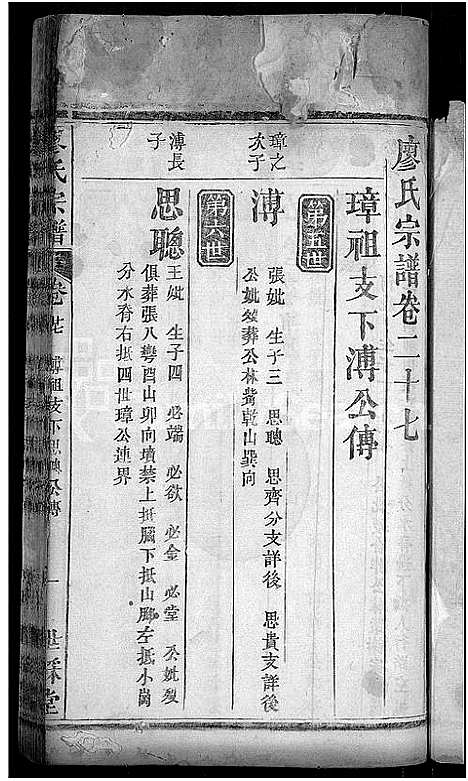 廖氏宗譜卷二十七
璋祖支下溥公傳
第五世
璋之
次子
溥
張妣 生子三 思聰 思齊分支詳後 思貴支詳後
公妣葬公林乾山巽向
第六世
溥長
子
思聰
王妣 生子四 必端 必欲 必金 必堂 公妣
俱葬張八酉山卯向墳禁上抵腦下抵山脚左抵小崗
分水脊右抵四世璋公連界
廖氏宗譜
卷廿七
溥祖支下思聰公傳
一
世綵堂